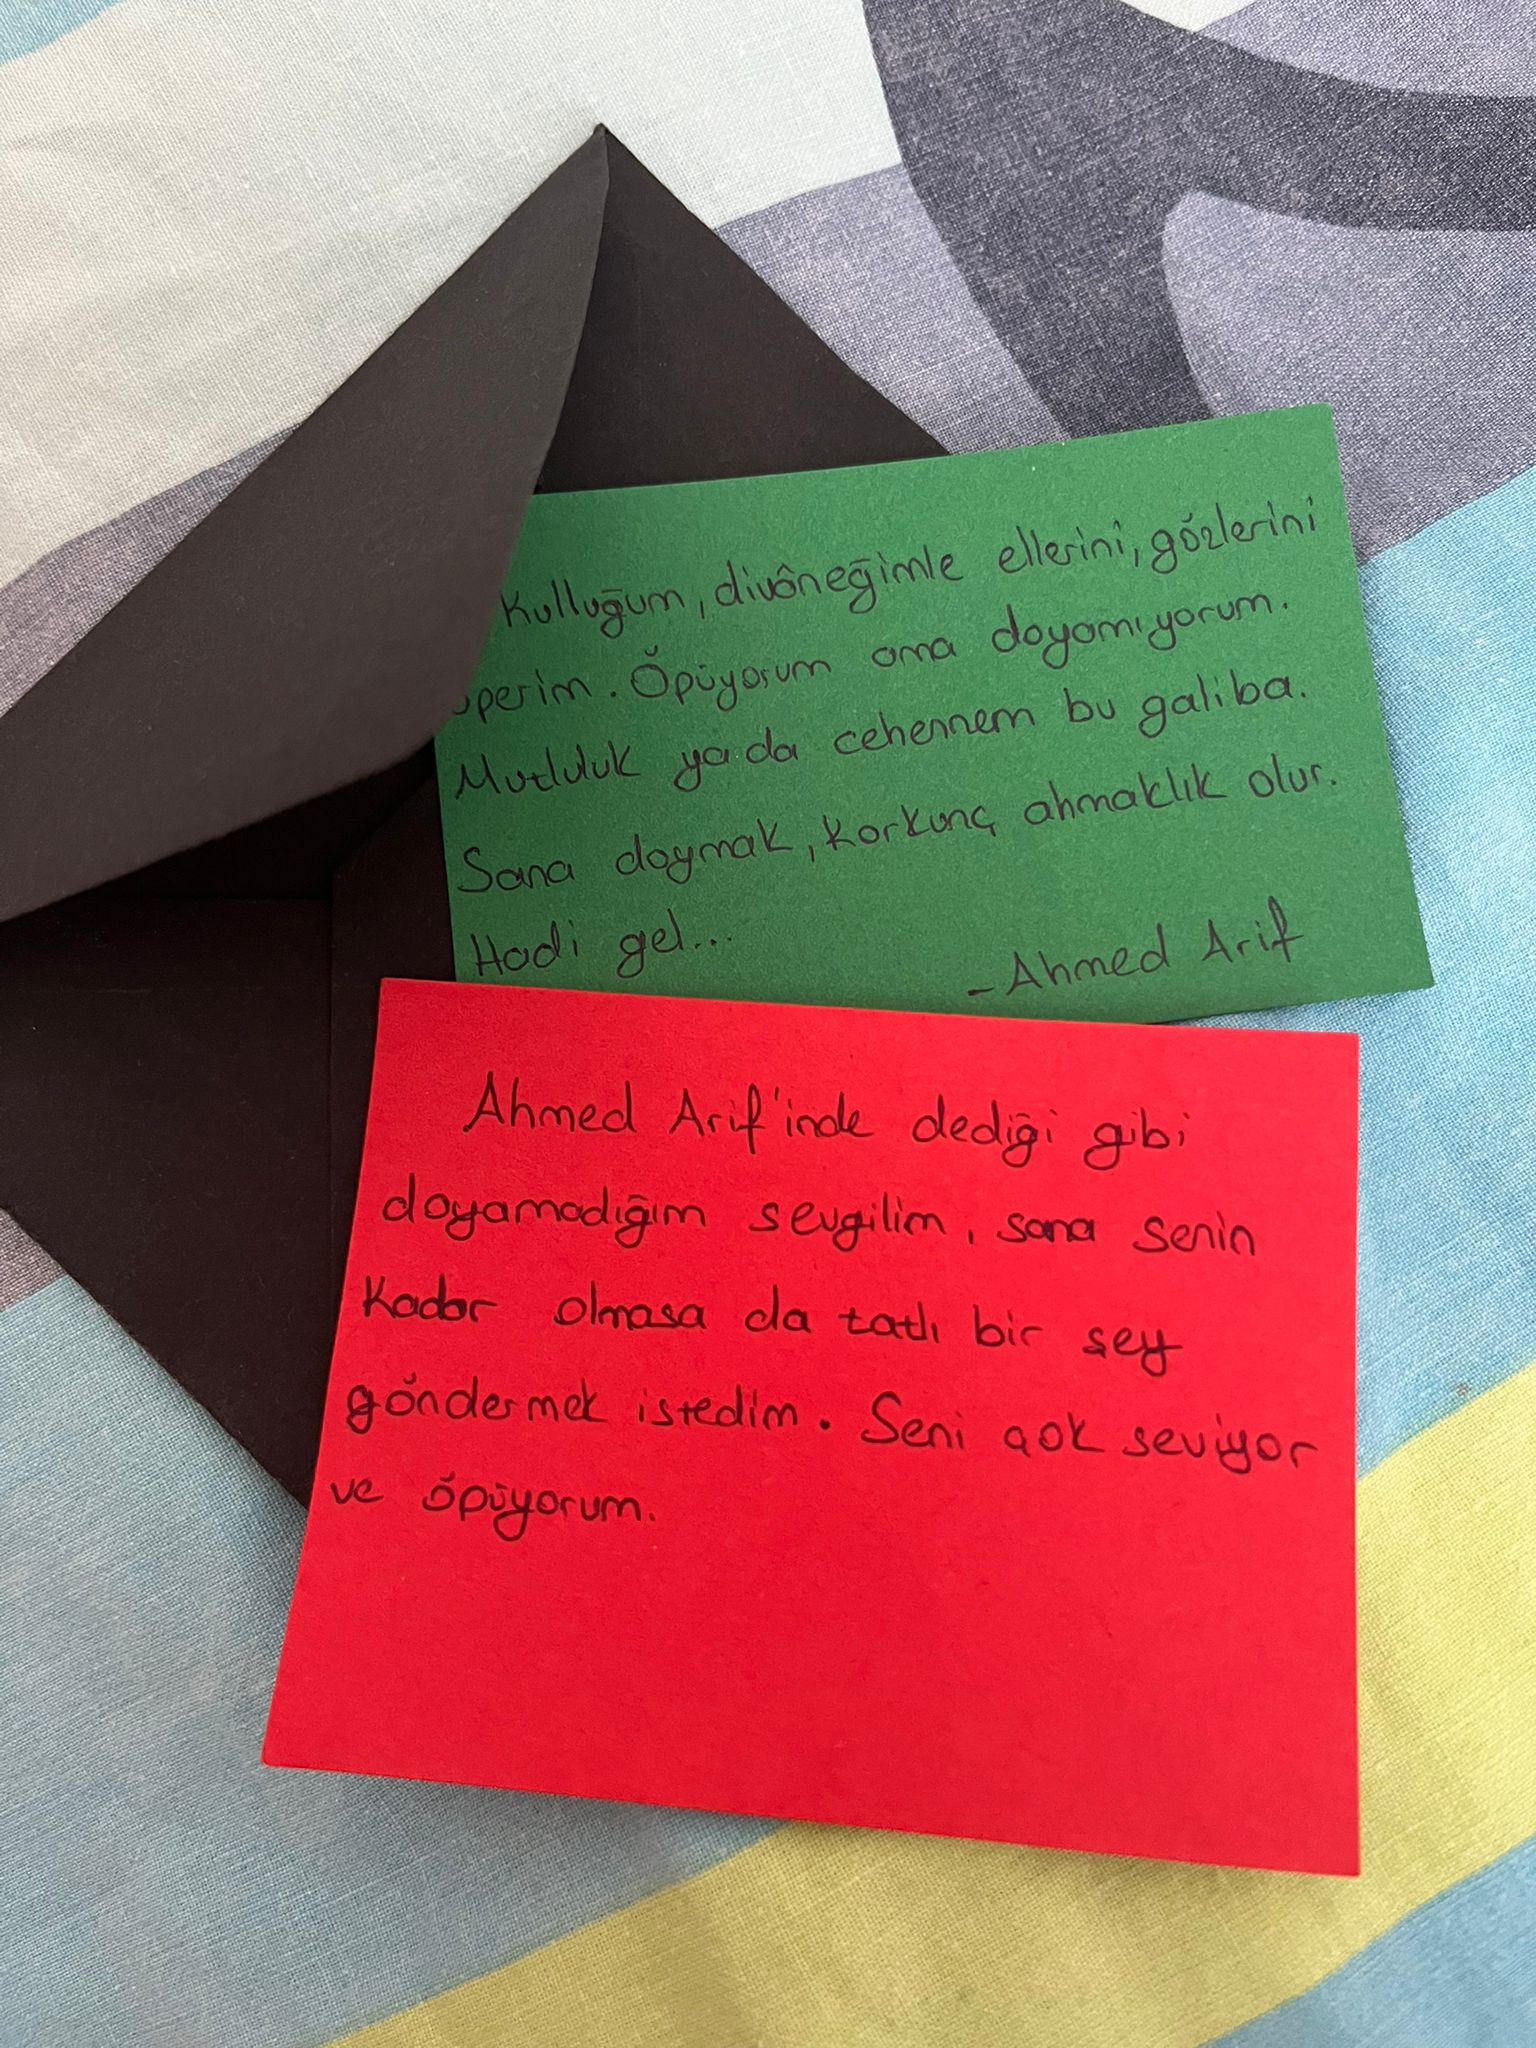 Kulluğum, divâneğimle ellerini, gözlerini
öperim. Öpüyorum ama doyamıyorum.
Mutluluk ya da cehennem bu galiba.
Sana doymak, korkunç ahmaklık olur.
Hadi gel...
- Ahmed Arif
Ahmed Arif'inde dediği gibi
doyamadığım sevgilim, sana senin
kadar olmasa da tatlı bir şey
göndermek istedim. Seni çok seviyor
ve öpüyorum.